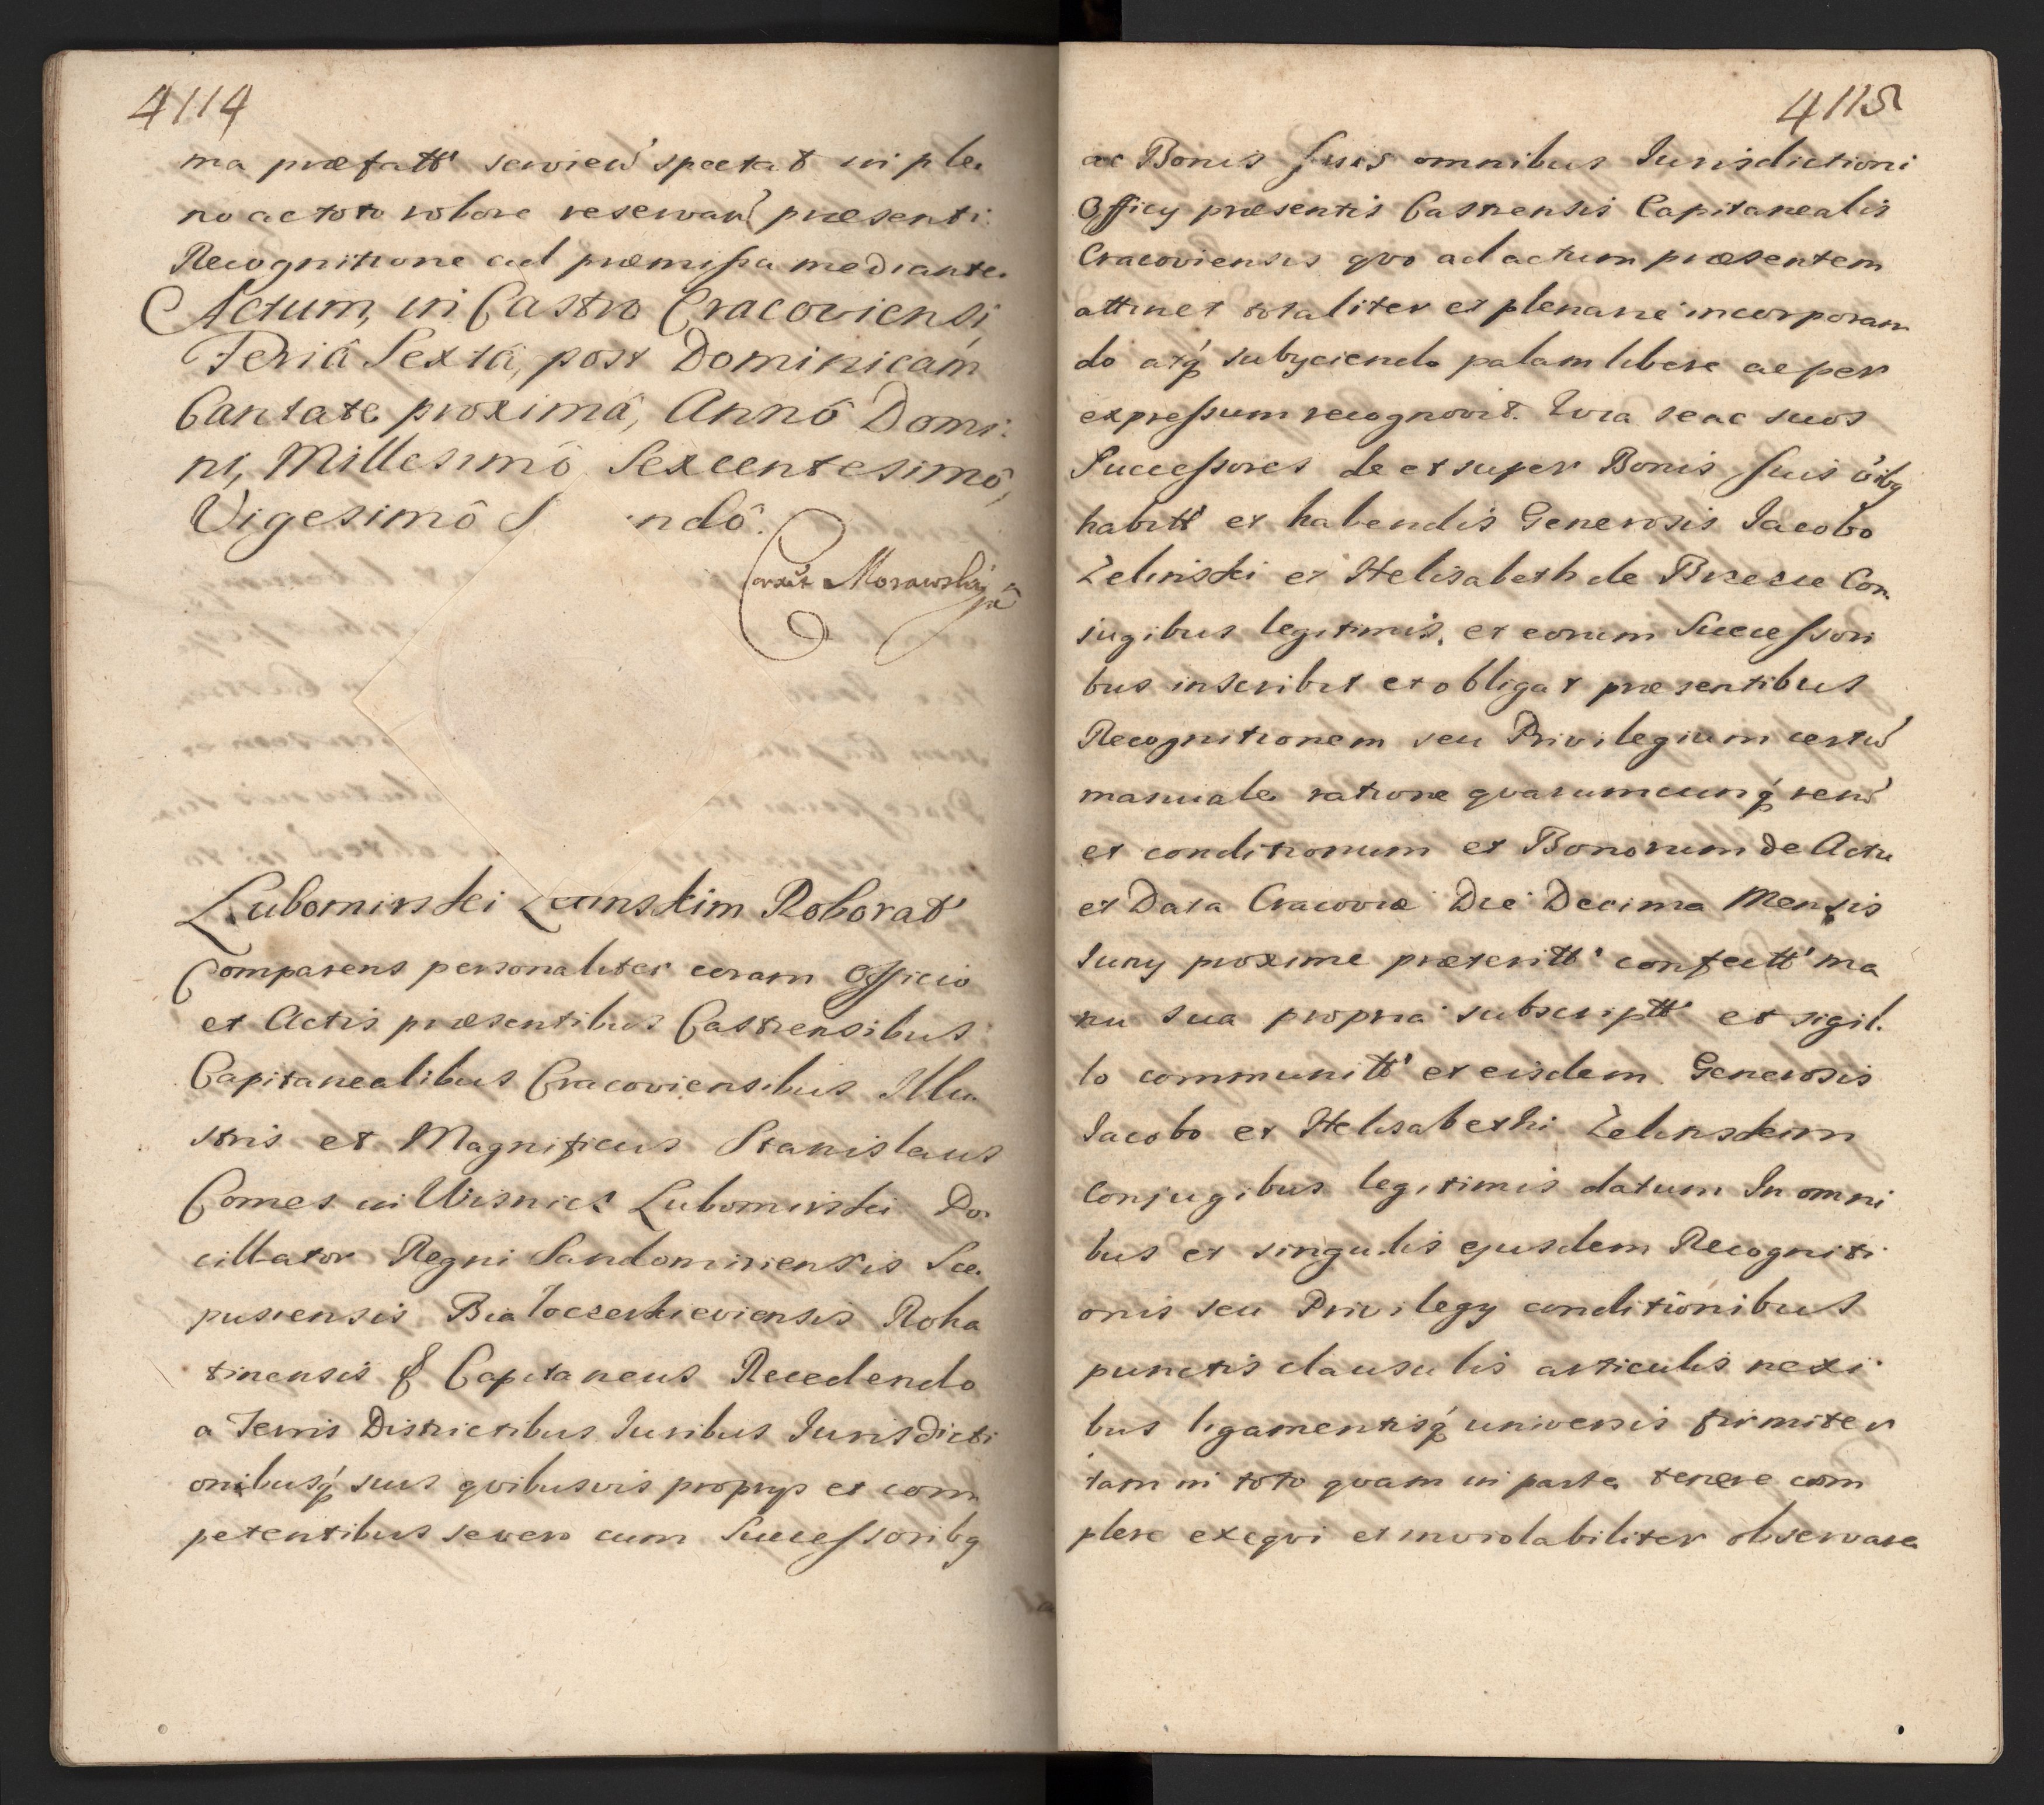 4114
ma præfatt' serview' spectat in ple
no ac toto robore reservan' præsenti
Recognitione ad præmissa mediante.
Actum, in Castro Cracoviensi,
Feriâ Sextâ, post Dominicam
Cantate proximâ, Annô Domi:
ni, Millesimô Sexcentesimô,
Vigesimô S ndô.
Corrxit Morawskij
Lubomirski Zelinskim Roborat
Comparens personaliter coram Officio
et Actis præsentibus Castrensibus
Capitanealibus Cracoviensibus Illu
stris et Magnificus Stanislaus
Comes in Wisnicz Lubomirski Po:
cillator Regni Sandomiriensis Sce
pusiensis Białocerkieviensis Roha
tinensis & Capitaneus Recedendo
a Terris Districtibus Juribus Jurisdicti
onibusq́ suis qvibusvis proprys et com
petentibus se vero cum Successoribq
4115
ac Bonis suis omnibus Jurisdictioni
Officy præsentis Castrensis Capitanealis
Cracoviensis qvo ad actum præsentem
attinet totaliter et plenarie incorporan
do atq́ subyciendo palam libere ac per
expressum recognovit. Qvia se ac suos
Successores de et super Bonis suis o'ibq
habitt' et habendis Generosis Jacobo
Zelinski et Helisabeth de Brzezie Con
jugibus legitimis, et eorum Successori
bus inscribit et obligat præsentibus
Recognitionem seu Privilegium certu'
manuale ratione qvarumcunq́ reru'
et conditionum et Bonorum de Actu
et Data Cracoviæ Die Decima Mensis
Juny proxime præteritt' confectt' ma
nu sua propria subscriptt' et sigil
lo communitt' et eisdem Generosis
Jacobo et Helisabethi Zelinskim
Conjugibus legitimis datum In omni
bus et singulis ejusdem Recogniti
onis seu Privilegy conditionibus
punctis clausulis articulis nexi
bus ligamentisq́ universis firmiter
tam in toto qvam in parte tenere com
plere exeqvi et inviolabiliter observare